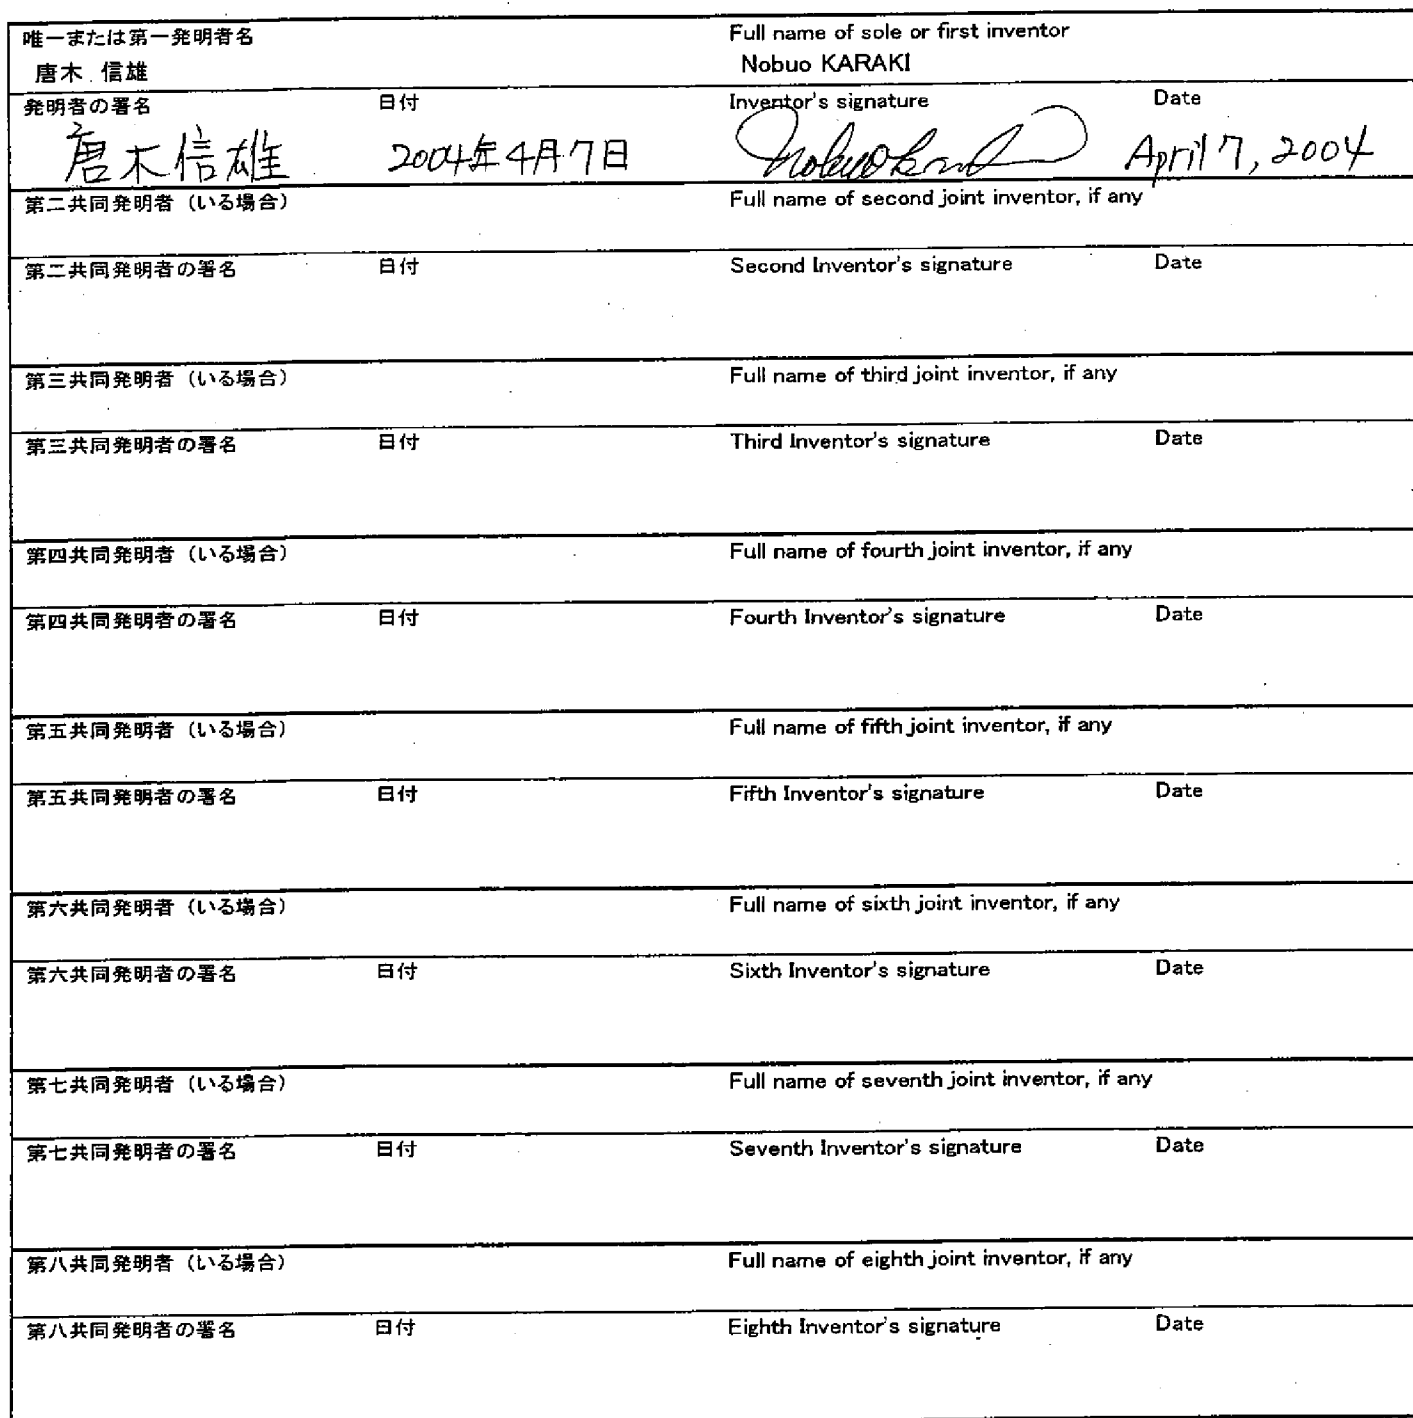 唯一または第一発明者名 Full name of sole or first inventor
唐木 信雄 Nobuo KARAKI
発明者の署名 日付 Inventor's signature Date
唐木信雄 2004年4月7日 Nobuo Karaki April 7, 2004
第二共同発明者（いる場合） Full name of second joint inventor, if any
第二共同発明者の署名 日付 Second Inventor's signature Date
第三共同発明者（いる場合） Full name of third joint inventor, if any
第三共同発明者の署名 日付 Third Inventor's signature Date
第四共同発明者（いる場合） Full name of fourth joint inventor, if any
第四共同発明者の署名 日付 Fourth Inventor's signature Date
第五共同発明者（いる場合） Full name of fifth joint inventor, if any
第五共同発明者の署名 日付 Fifth Inventor's signature Date
第六共同発明者（いる場合） Full name of sixth joint inventor, if any
第六共同発明者の署名 日付 Sixth Inventor's signature Date
第七共同発明者（いる場合） Full name of seventh joint inventor, if any
第七共同発明者の署名 日付 Seventh Inventor's signature Date
第八共同発明者（いる場合） Full name of eighth joint inventor, if any
第八共同発明者の署名 日付 Eighth Inventor's signature Date